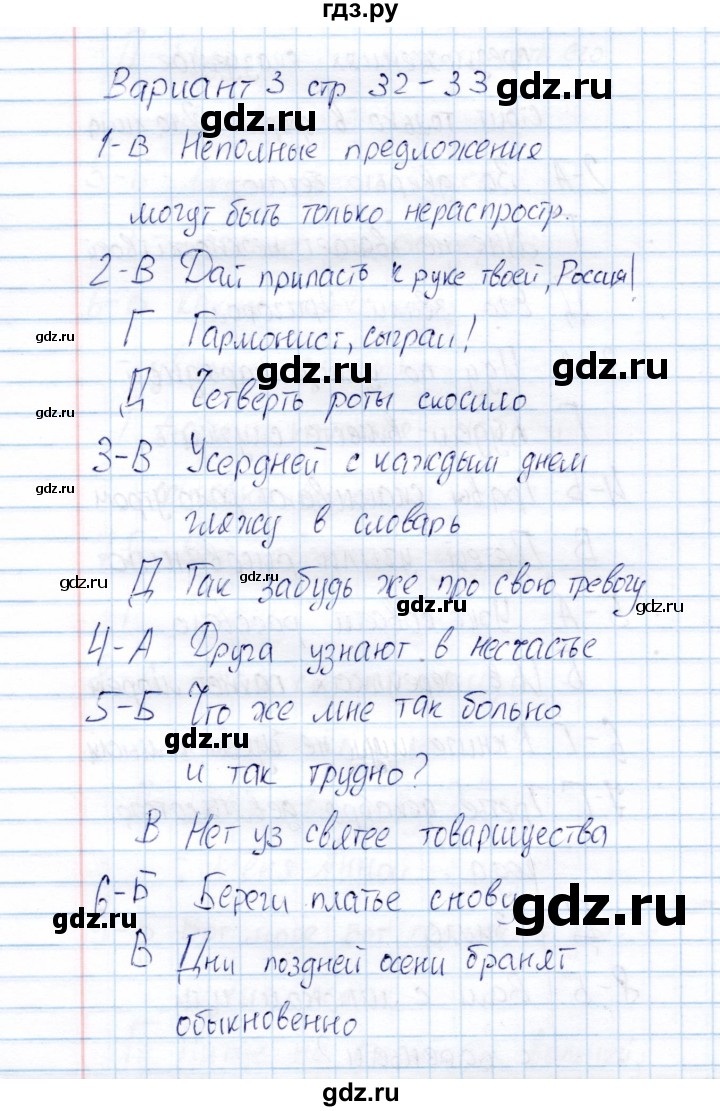 гдз.ру
Вариант 3 стр 32-33
gdz.ru
gdz.ru
1-В Неполные предложения
могут быть только нераспростр.
gdz.ru
gdz.ru
2-В Дай припасть к руке твоей, Россия!
gdz.ru
Г Гармонист, сыграй!
gdz.ru
gdz.ru
gdz.ru
Д Четверть роты скосило
3-В Усердней с каждым днем
gdz.ru
гляжу в словарь
gdz.ru
gdz.ru
Д Так забудь же про свою тревогу
gdz.ru
gdz.ru
4-А Друга узнают в несчастье
5-Б Что же мне так больно
gdz.ru
gdz.ru
и так трудно?
В Нет уз святее товарищества
6-Б Береги платье снову
gdz.ru
gdz.ru
В Дни поздней осени бранят
обыкновенно
gdz.ru